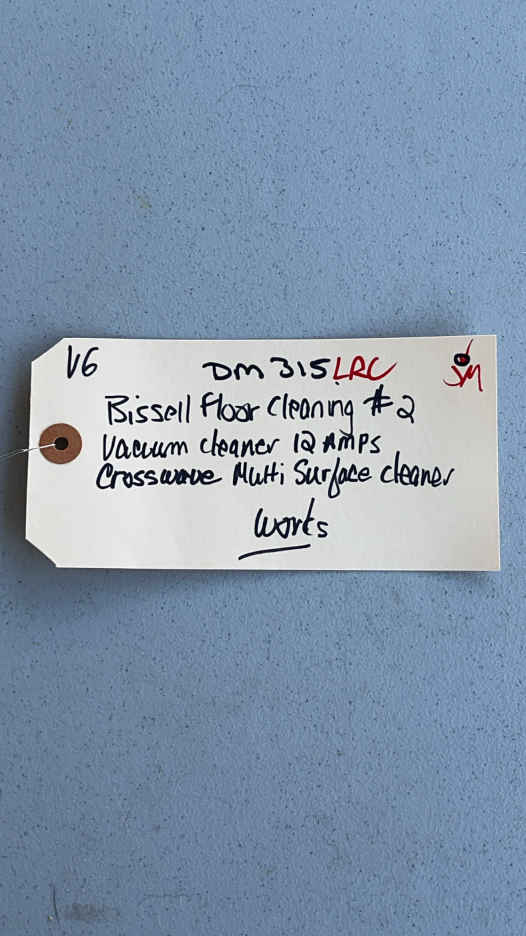 V6
DM315LRC
JM
Bissell Floor Cleaning #2
Vacuum cleaner 12 AMPS
Crosswave Multi Surface cleaner
works